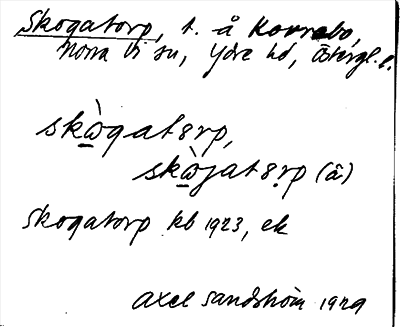 Skogatorp, t. å Korrebo,
Norra Vi sn, Ydre hd, Östergl. l.
skὼgatꞷrp,
skὼjatꞷrp (â)
Skogatorp kb 1923, ek
Axel Sandholm 1929